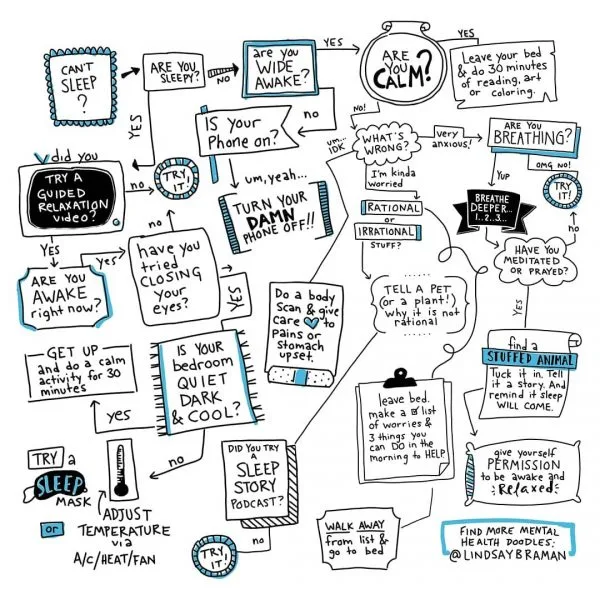 CAN'T
SLEEP
?
ARE YOU
SLEEPY?
NO
YES
are you
WIDE
AWAKE?
YES
no
ARE
YOU
CALM?
YES
Leave your bed
& do 30 minutes
of reading, art
or coloring.
NO!
IS Your
Phone on?
um, yeah...
TURN YOUR
DAMN
PHONE OFF!!
um...
IDK
WHAT'S
WRONG?
very
anxious!
ARE YOU
BREATHING?
OMG NO!
TRY
IT!
YUP
BREATHE
DEEPER...
1..2..3...
no
HAVE YOU
MEDITATED
OR PRAYED?
YES
I'm kinda
worried
RATIONAL
or
IRRATIONAL
STUFF?
did you
TRY A
GUIDED
RELAXATION
video?
no
TRY
IT!
YES
ARE YOU
AWAKE
right now?
yes
no
have you
tried
CLOSING
your
eyes?
YES
TELL A PET
(or a plant!)
why it is not
rational
Do a body
Scan & give
care to
Pains or
stomach
upset.
find a
STUFFED ANIMAL
Tuck it in. Tell
it a story. And
remind it sleep
WILL COME.
GET UP
and do a calm
activity for 30
minutes
IS YOUR
bedroom
QUIET
DARK
& COOL?
yes
no
leave bed.
make a list
of worries &
3 things you
can DO in the
morning to HELP
TRY a
SLEEP
MASK
or
ADJUST
TEMPERATURE
via
A/C/HEAT/FAN
DID YOU TRY
A
SLEEP
STORY
PODCAST?
no
TRY
IT!
give yourself
PERMISSION
to be awake and
Relaxed
WALK AWAY
from list &
go to bed
FIND MORE MENTAL
HEALTH DOODLES:
@LINDSAYBRAMAN